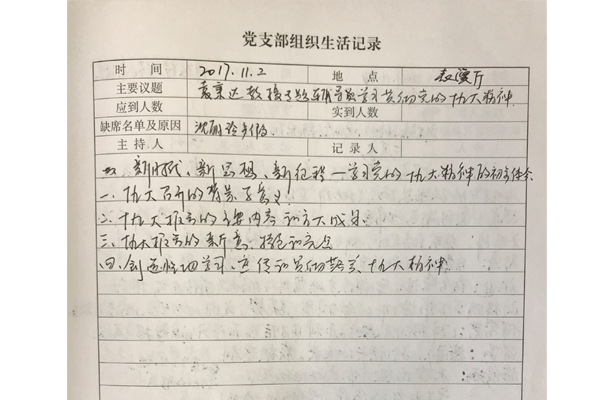 党支部组织生活记录
时 间 2017.11.2 地 点 厅
主要议题 袁秉达教授专题辅导 学习贯彻党的十九大精神
应到人数 实到人数
缺席名单及原因 沈丽 请假
主 持 人 记 录 人
新时代、新思想、新征程—学习党的十九大精神的初步体会
一、十九大召开的背景与意义
二、十九大报告的主要内容 和 大成果
三、十九大报告的新意、特色和亮点
四、学习、宣传和贯彻落实十九大精神